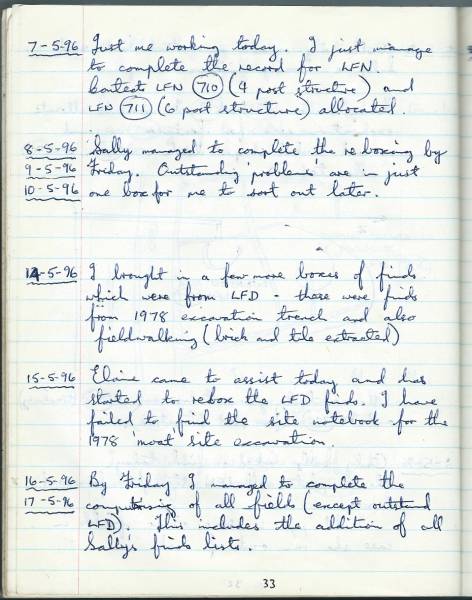 7-5-96 Just me working today. I just manage
to complete the record for LFN.
Contexts LFN 710 (4 post structure) and
LFN 711 (6 post structure) allocated.
8-5-96 Sally managed to complete the reboxing by
9-5-96 Friday. Outstanding 'problems' are in just
10-5-96 one box for me to sort out later.
14-5-96 I brought in a few more boxes of finds
which were from LFD - these were finds
from 1978 excavation trench and also
fieldwalking (brick and tile extracted)
15-5-96 Elaine came to assist today and has
started to rebox the LFD finds. I have
failed to find the site notebook for the
1978 'moat' site excavation.
16-5-96 By Friday I managed to complete the
17-5-96 computerising of all fields (except outstand
LFD). This includes the addition of all
Sally's finds lists.
33